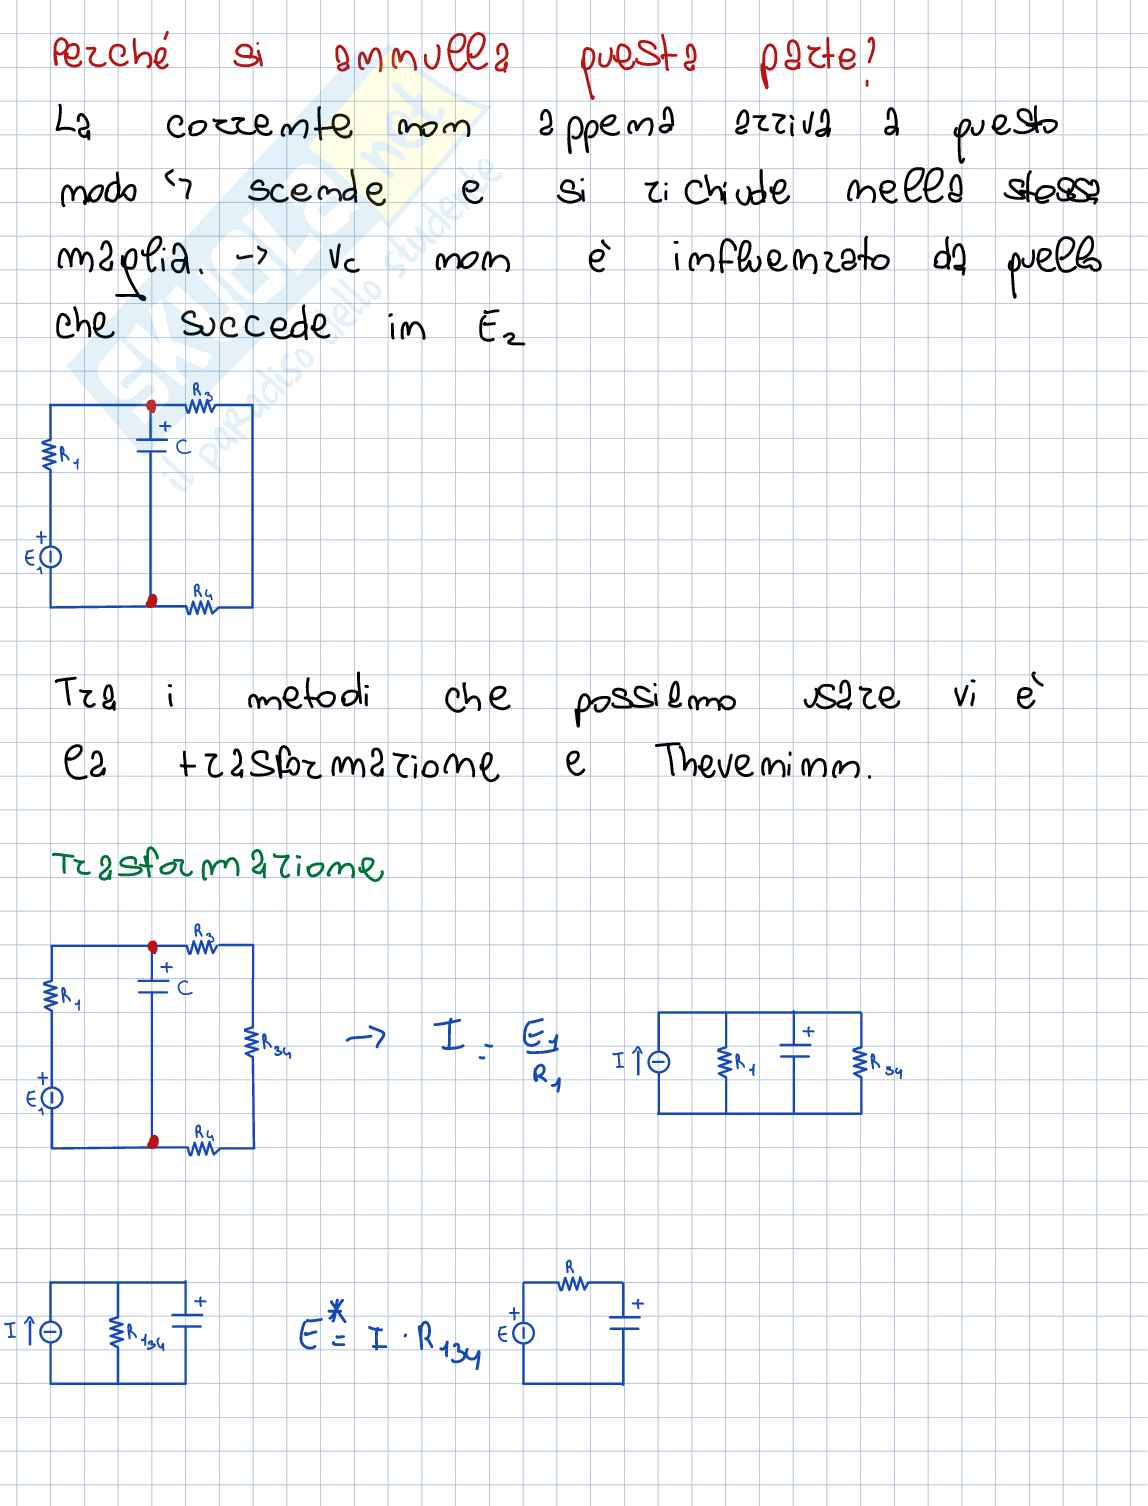 Perché si annulla questa parte?
La corrente non appena arriva a questo
nodo ↳ scende e si richiude nella stessa
maglia. → Vc non è influenzato da quello
che succede in E2
R3
+
C
R1
+
E1
R4
Tra i metodi che possiamo usare vi è
la trasformazione e Theveninn.
Trasformazione
R3
+
C
R1
R34
+
E1
R4
→ I = E1/R1
I↑ R1 + R34
I↑ R134 +
E* = I · R134
R
+
E
+
SKUOLA.net
il paradiso dello studente